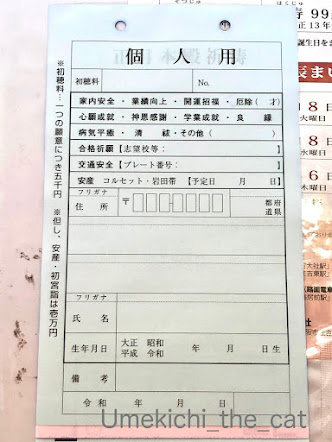 個人用
初穂料
No.
家内安全・業績向上・開運招福・厄除(才)
心願成就・神恩感謝・学業成就・良縁
病気平癒・清祓・その他()
合格祈願【志望校等:】
交通安全【プレート番号:】
安産 コルセット・岩田帯【予定日 月 日】
フリガナ
住所
〒
都府
道県
フリガナ
氏名
生年月日
大正 昭和
平成 令和
年 月 日生
備考
令和 年 月 日
※初穂料…一つの願意につき五千円 ※但し、安産・初宮詣は壱万円
はくじゅ
99
正13年
誕生日を
8
火曜日
8
水曜日
6
木曜日
Umekichi_the_cat